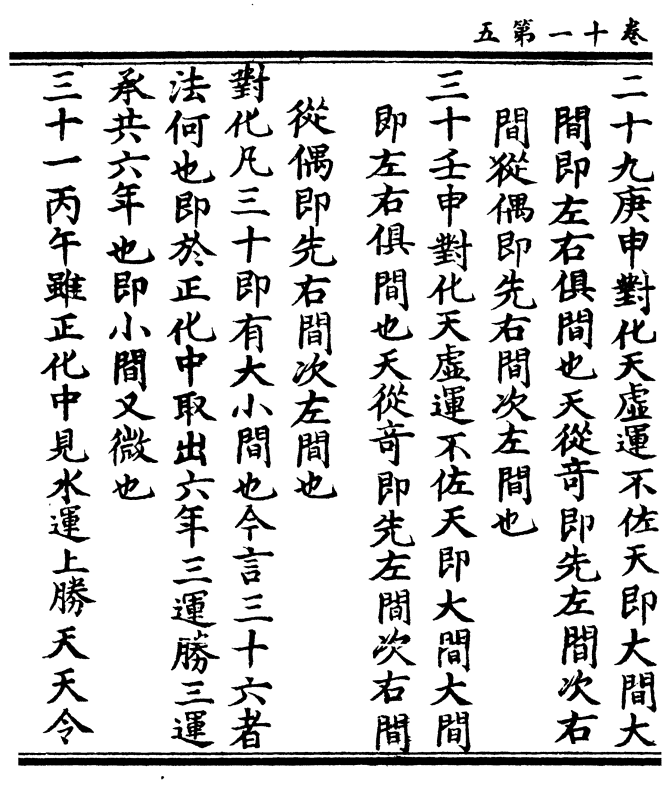 卷十一第五
二十九庚申對化天虛運不佐天即大間大
間即左右俱間也天從竒即先左間次右
間從偶即先右間次左間也
三十壬申對化天虛運不佐天即大間大間
即左右俱間也天從竒即先左間次右間
從偶即先右間次左間也
對化凡三十即有大小間也今言三十六者
法何也即於正化中取出六年三運勝三運
承共六年也即小間又微也
三十一丙午雖正化中見水運上勝天天令